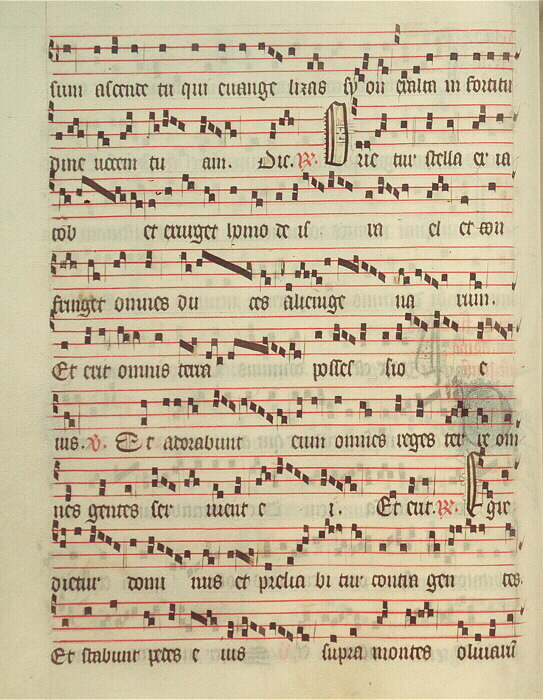 sum ascende tu qui euange lizas sy on exalta in fortitu
dine uocem tu am. Dic. R. Orie tur stella ex ia
cob et exurget homo de is ra el et con
fringet omnes du ces alienige na rum
Et erit omnis terra posses sio e
ius. V. Et adorabunt eum omnes reges ter re om
nes gentes ser uient e i. Et erit. R. Egre
dietur domi nus et prelia bi tur contra gen tes
Et stabunt pedes e ius supra montes oliuarū